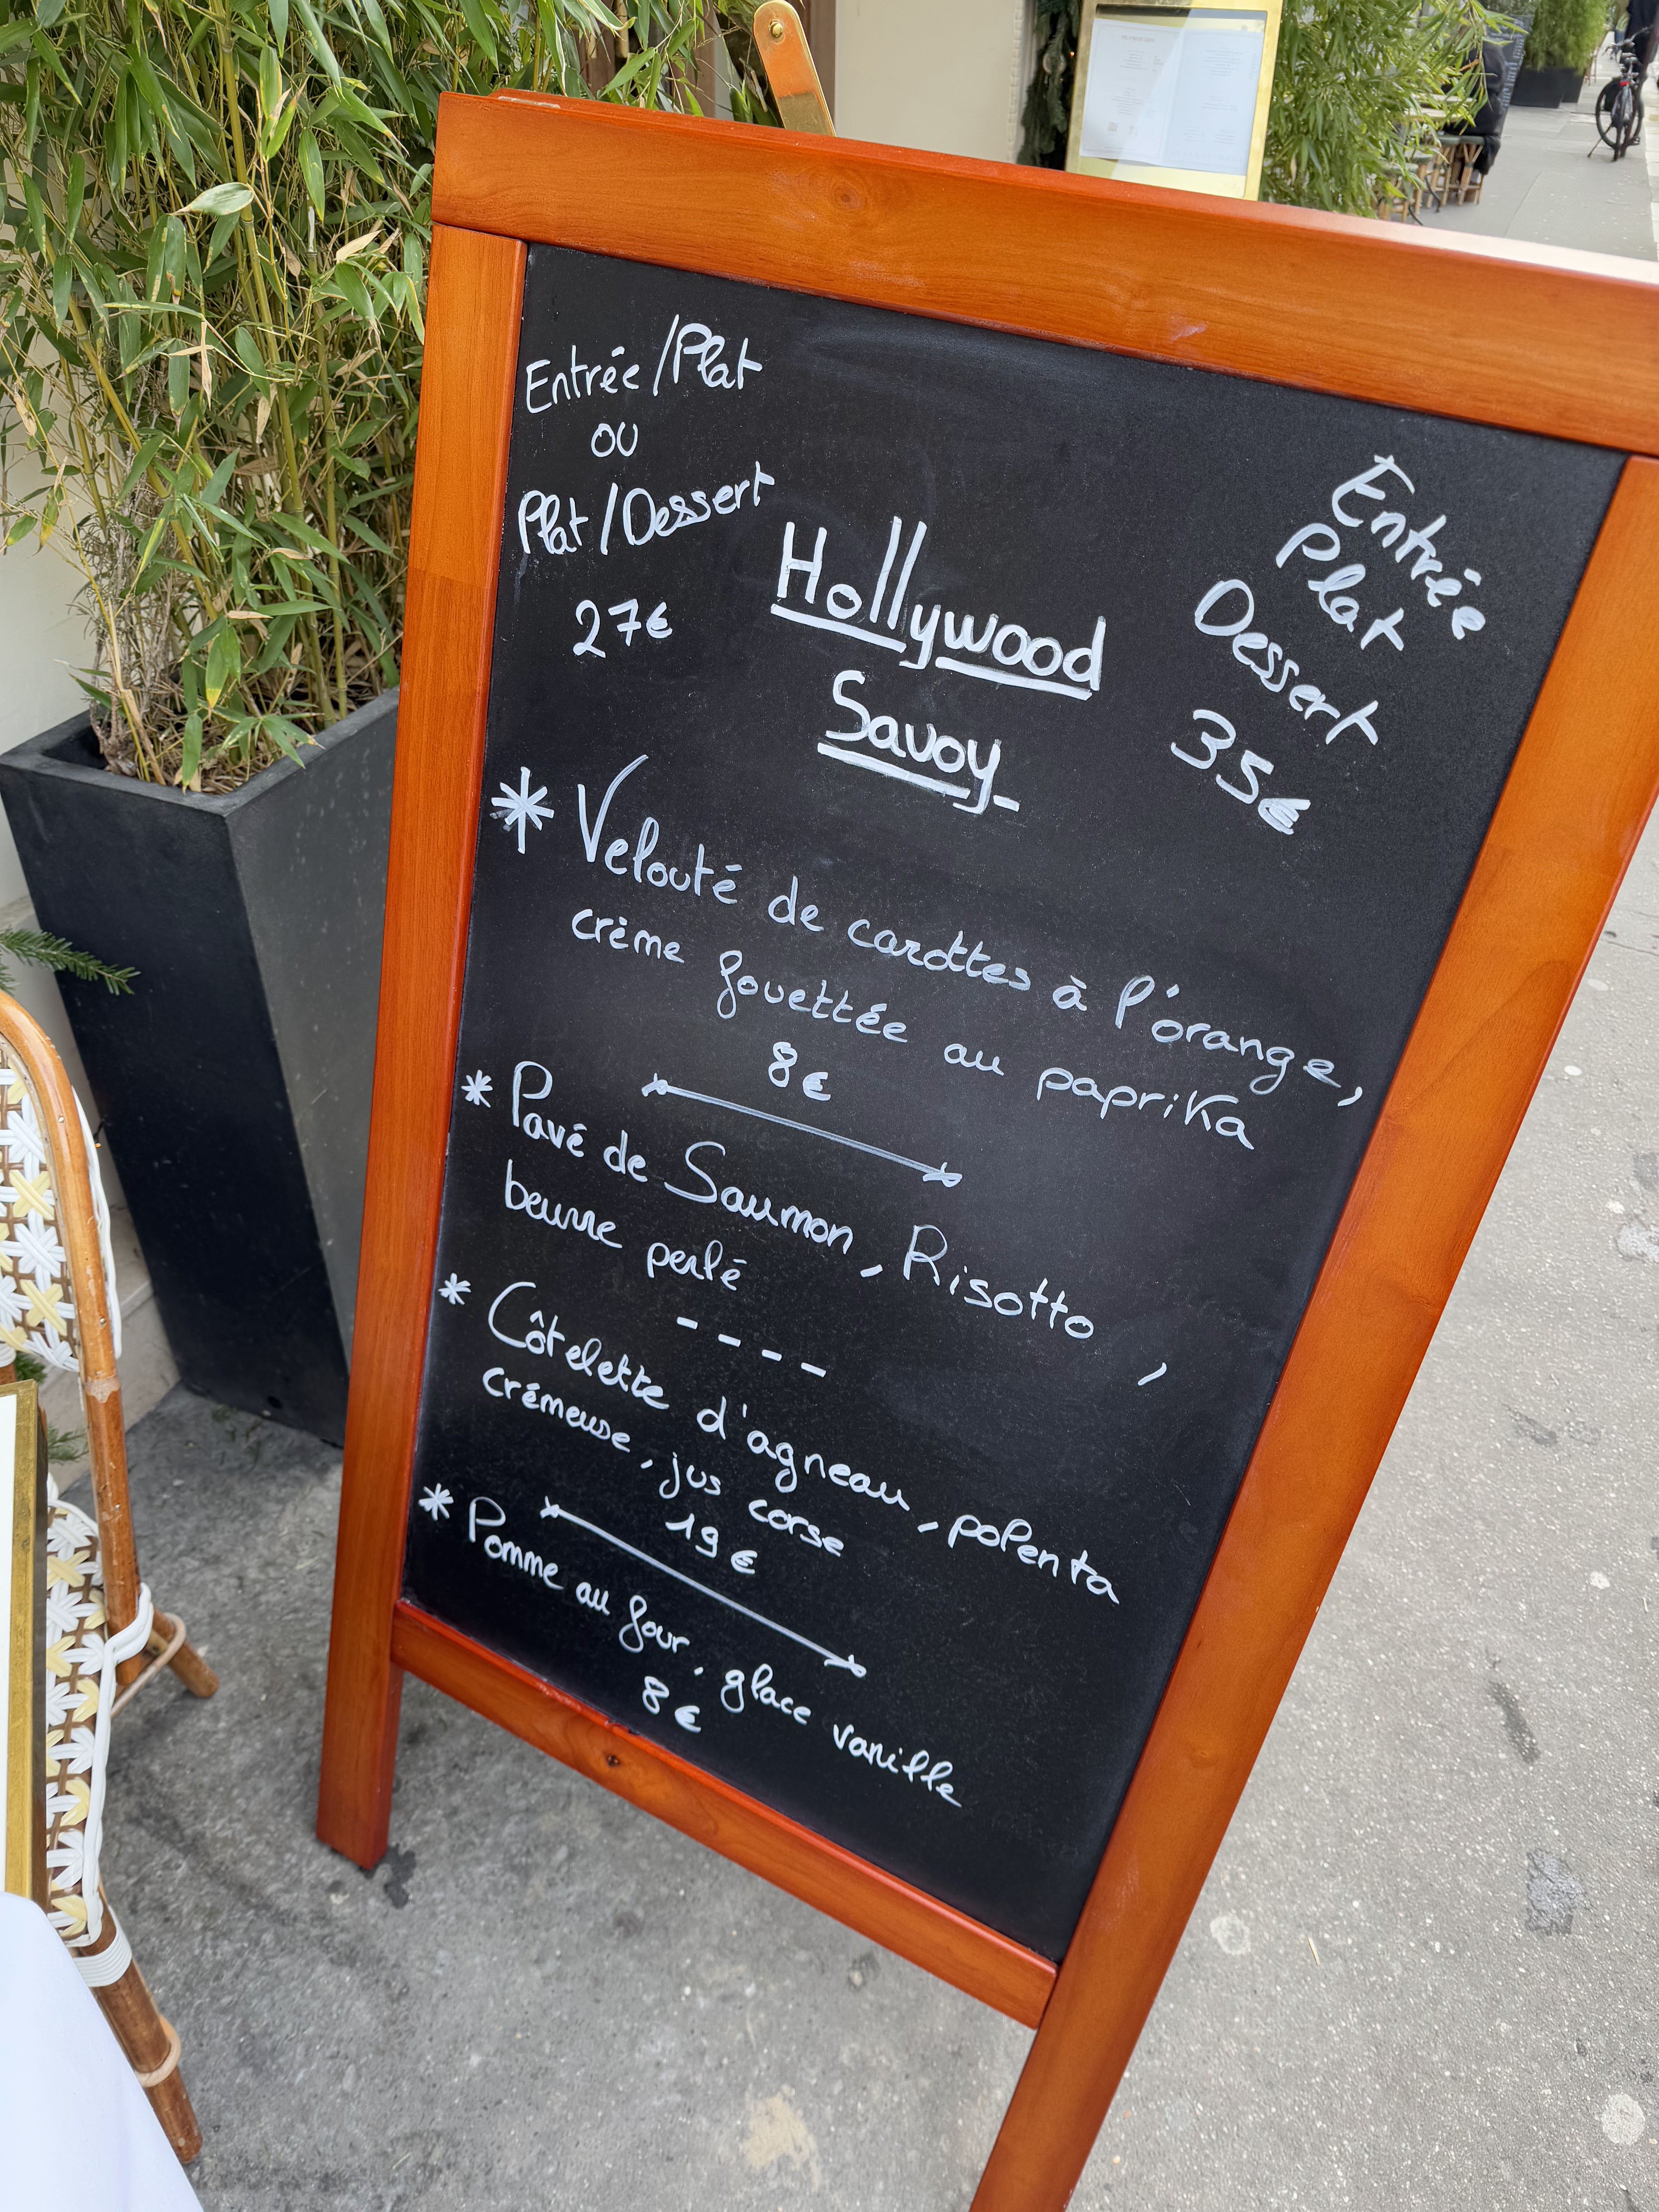 Entrée/Plat
ou
Plat/Dessert
27€
Hollywood
Savoy
Entrée
Plat
Dessert
35€
* Velouté de carottes à l'orange,
crème fouettée au paprika
8€
* Pavé de Saumon, Risotto,
beurre perlé
----
* Côtelette d'agneau, polenta
crémeuse, jus corse
19€
* Pomme au four, glace vanille
8€